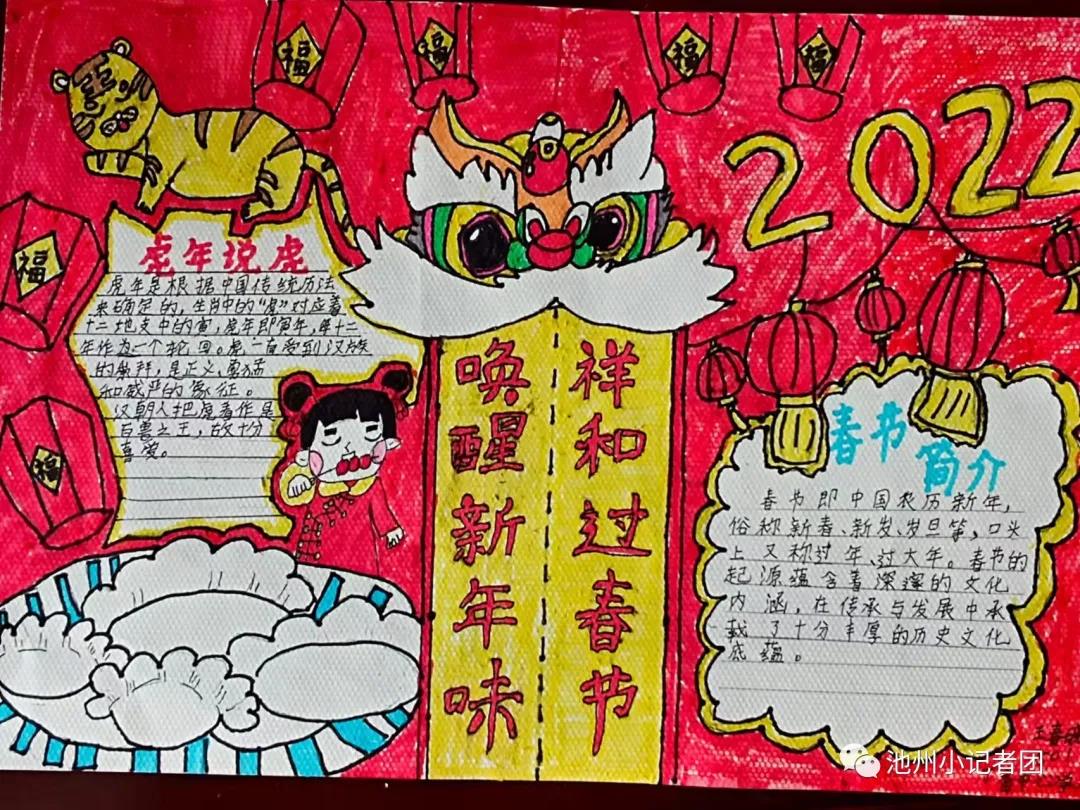 福
福
福
福
2022
福
福
虎年说虎
虎年是根据中国传统历法
来确定的，生肖中的“虎”对应着
十二地支中的寅，虎年即寅年，每十二
年作为一个轮回。虎一直受到汉族
的崇拜，是正义、勇猛
和威严的象征。
汉朝人把虎看作是
百兽之王，故十分
喜爱。
唤醒新年味
祥和过春节
春节
简介
春节即中国农历新年，
俗称新春、新岁、岁旦等，口头
上又称过年、过大年。春节的
起源蕴含着深邃的文化
内涵，在传承与发展中承
载了十分丰厚的历史文化
底蕴。
池州小记者团